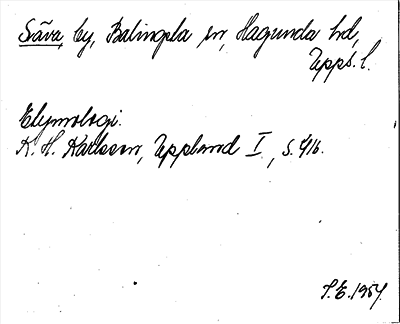 Säva, by, Balingsta sn, Hagunda hd,
Upps. l.
Etymologi.
K. H. Karlsson, Uppland I, s. 416.
S. E. 1954.